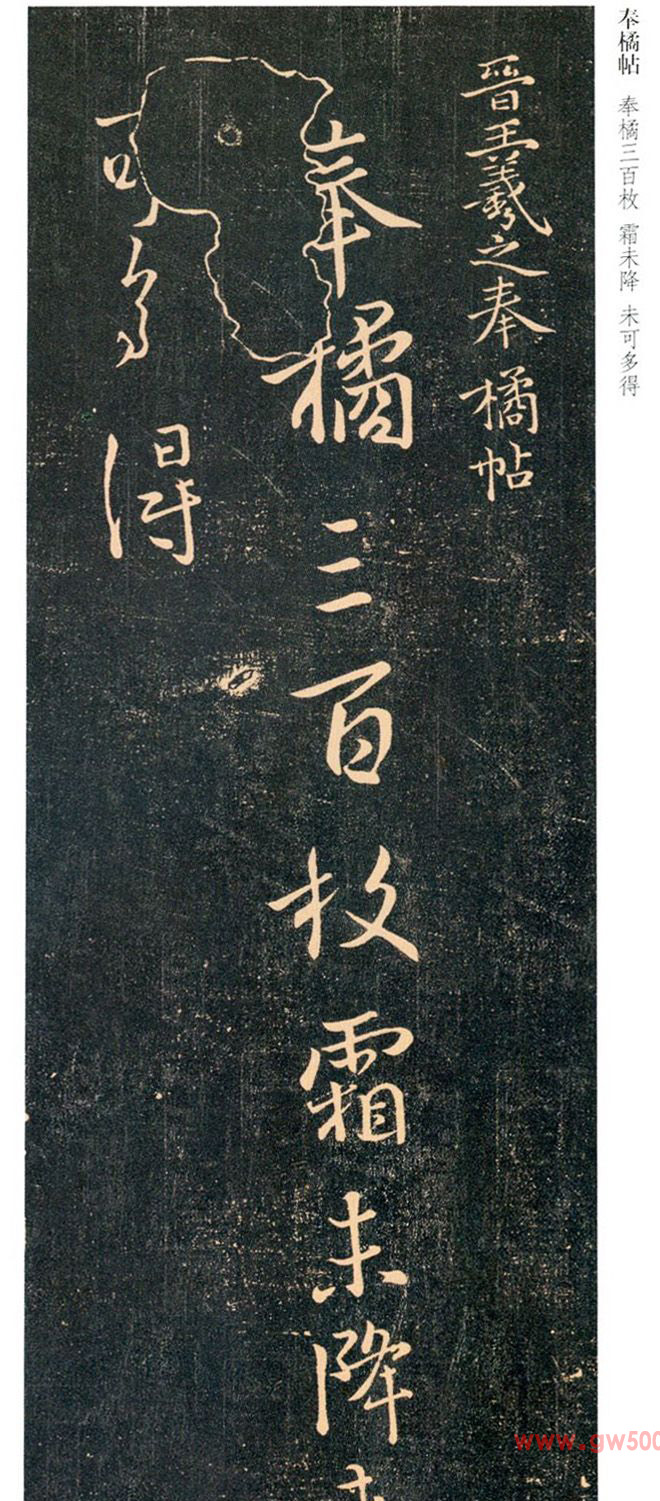 奉橘帖 奉橘三百枚 霜未降 未可多得
晋王羲之奉橘帖
奉橘三百枚霜未降未
可多得
www.gw500